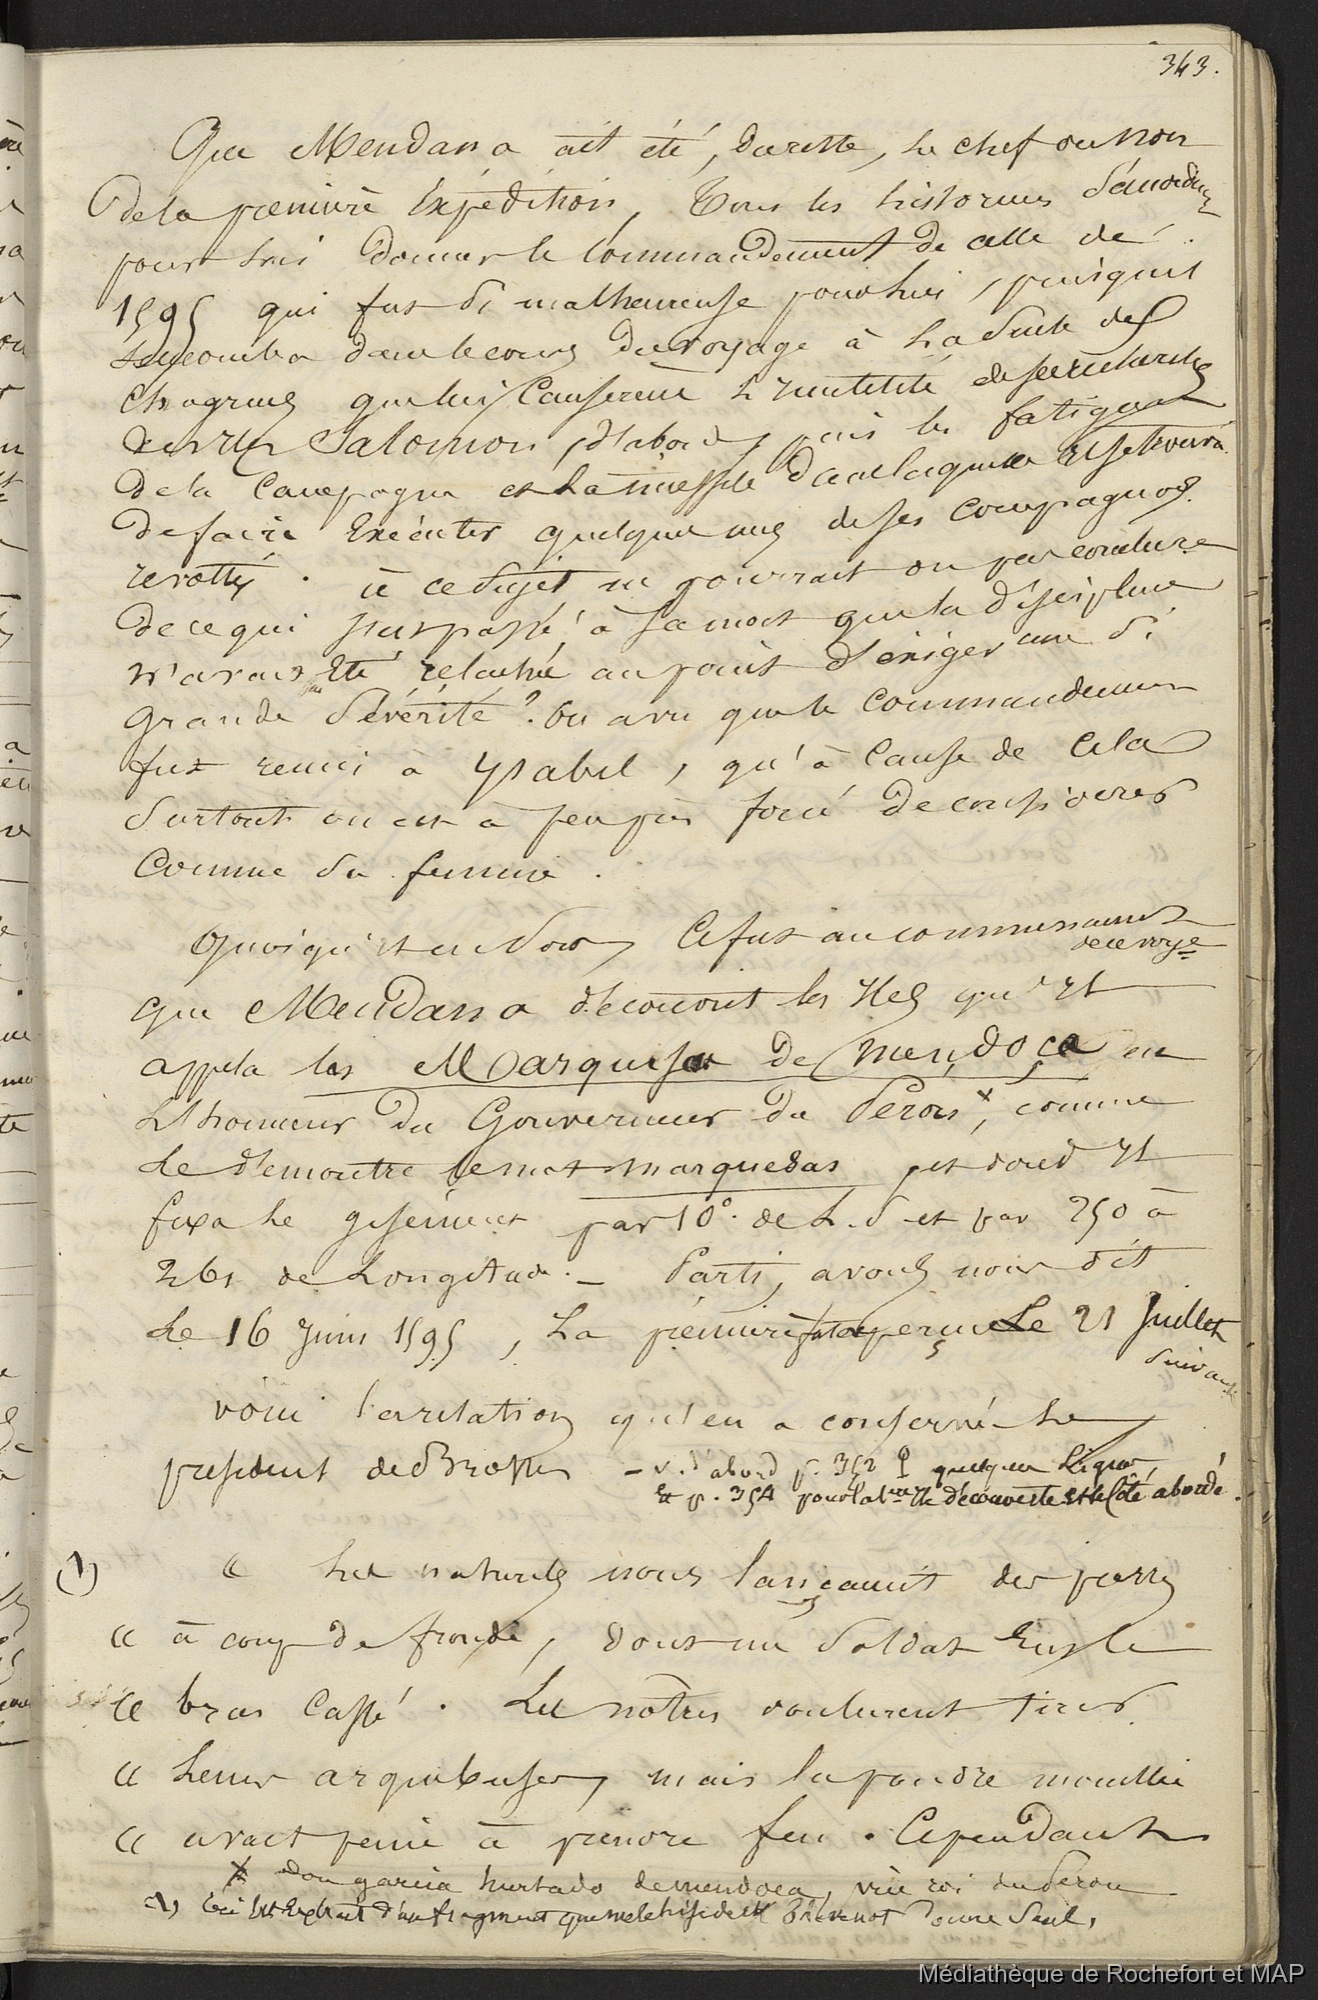 343.
Que Mendana ait été, du reste, le chef ou non
de la première Expédition, Tous les historiens s'accordent
pour lui donner le Commandement de celle de
1595 qui fut si malheureuse pour lui, puisqu'il
succomba dans le cours du voyage à la suite des
chagrins que lui causèrent l'inutilité de ses recherches
des Iles Salomon, d'abord, puis les fatigues
de la Campagne et la nécessité dans laquelle il se trouva
de faire Exécuter quelques uns de ses compagnons
révoltés. à ce sujet ne pourrait on pas conclure
de ce qui s'est passé à sa mort que la discipline
n'avait été relachée au point d'exiger une si
grande sévérité? On a vu que le commandement
fut remis à Ysabel, qu'à cause de cela
surtout on est à peu près forcé de considérer
comme sa femme.
Quoiqu'il en soit, ce fut au commencement
de ce voyge
que Mendana découvrit les Iles qu'il
appela las Marquesas de Mendoça en
l'honneur du Gouverneur du Pérou x, comme
le démontre le mot marquesas, et dont il
fixa le gisement par 10° de L. S et par 250 à
261 de Longitude. – Parti, avons nous dit
le 16 Juin 1595, la première fut aperçue Le 21 Juillet
suivant
voici la relation qu'en a conservée le
président de Brosses – v. d'abord p. 352 quelques lignes
et p. 354 pour la 1ere Ile découverte et le côté abordé.
(1) « Les naturels nous lançaient des pierres
« à coup de fronde, dont un soldat eut le
« bras cassé. Les nôtres voulurent tirer
« leurs arquebuses, mais la poudre mouillée
« avait peine à prendre feu. Cependant
x don garcia hurtado de mendoca, vice roi du Pérou
(1) Ceci Est Extrait d'un fragment que Thévenot donne seul.
Médiathèque de Rochefort et MAP